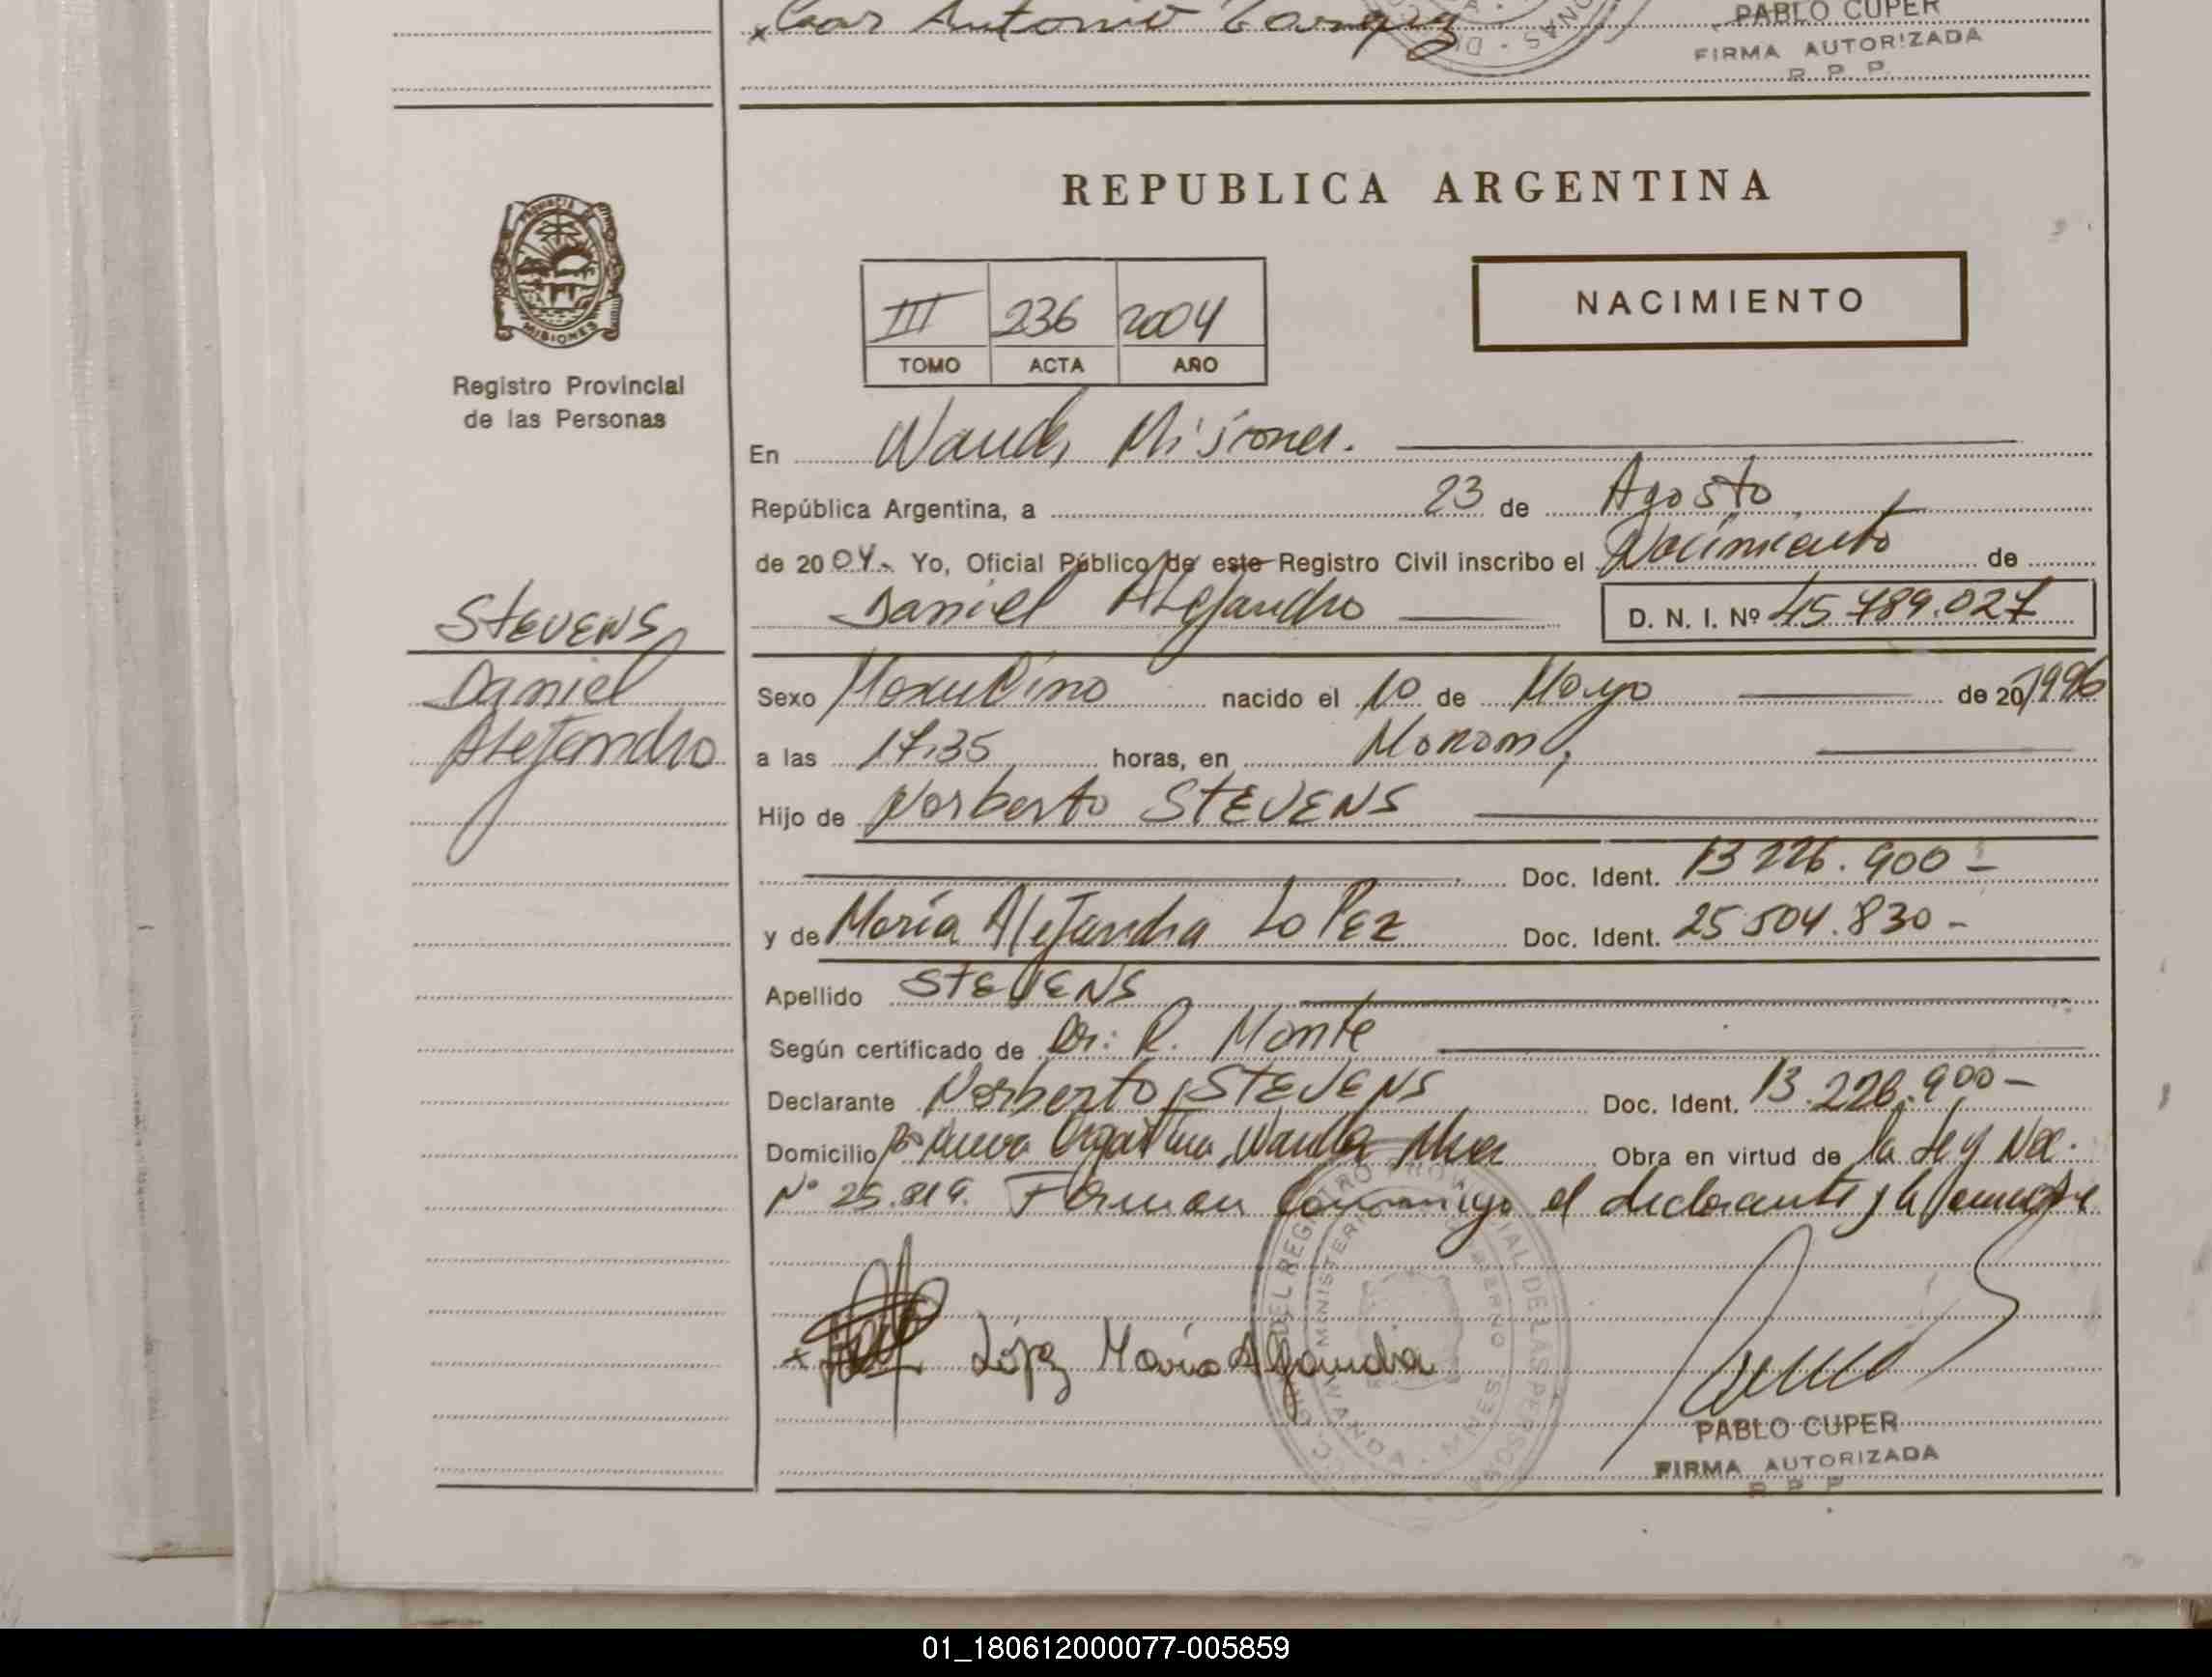 Cesar Antonio
PABLO CUPER
FIRMA AUTORIZADA
R P P
REPUBLICA ARGENTINA
PROVINCIA DE
MISIONES
Registro Provincial
de las Personas
III 236 2004
TOMO ACTA AÑO
NACIMIENTO
En Wanda, Misiones.
República Argentina, a 23 de Agosto
de 2004. Yo, Oficial Público de este Registro Civil inscribo el Nacimiento de
Daniel Alejandro D. N. I. Nº 45.789.027
STEVENS
Daniel
Alejandro
Sexo Masculino nacido el 10 de Mayo de 20 1996
a las 17,35 horas, en
Hijo de Norberto STEVENS
Doc. Ident. 13 226.900-
y de María Alejandra LoPEz Doc. Ident. 25 504.830-
Apellido STEVENS
Según certificado de Dr: R. Monte
Declarante Norberto STEVENS Doc. Ident. 13.226.900-
Domicilio Bº Nueva Argentina, Wanda Mnes Obra en virtud de la Ley Nac.
Nº 25.819. Firman conmigo el declarante y la
López María Alejandra
DEL REGISTRO PROVINCIAL DE LAS PERSONAS
MINISTERIO GOBIERNO
WANDA - MNES
PABLO CUPER
FIRMA AUTORIZADA
R P P
01_180612000077-005859